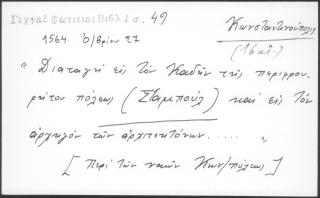 Γεννάδ. Φωτίειος Βιβλ. 1 σ. 49
Κωνσταντινούπολις
(16 αἰ.)
1564. Ὀ/βρίου 27
" Διαταγὴ εἰς τὸν Καδῆν τῆς περιφρου-
ρήτου πόλεως (Σταμπούλ) καὶ εἰς τὸν
ἀρχηγὸν τῶν ἀρχιτεκτόνων..... "
[ Περὶ τῶν ναῶν Κων/πόλεως ]